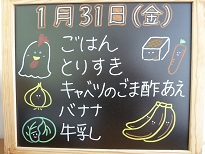 1月31日(金)
ごはん
とりすき
キャベツのごま酢あえ
バナナ
牛乳し